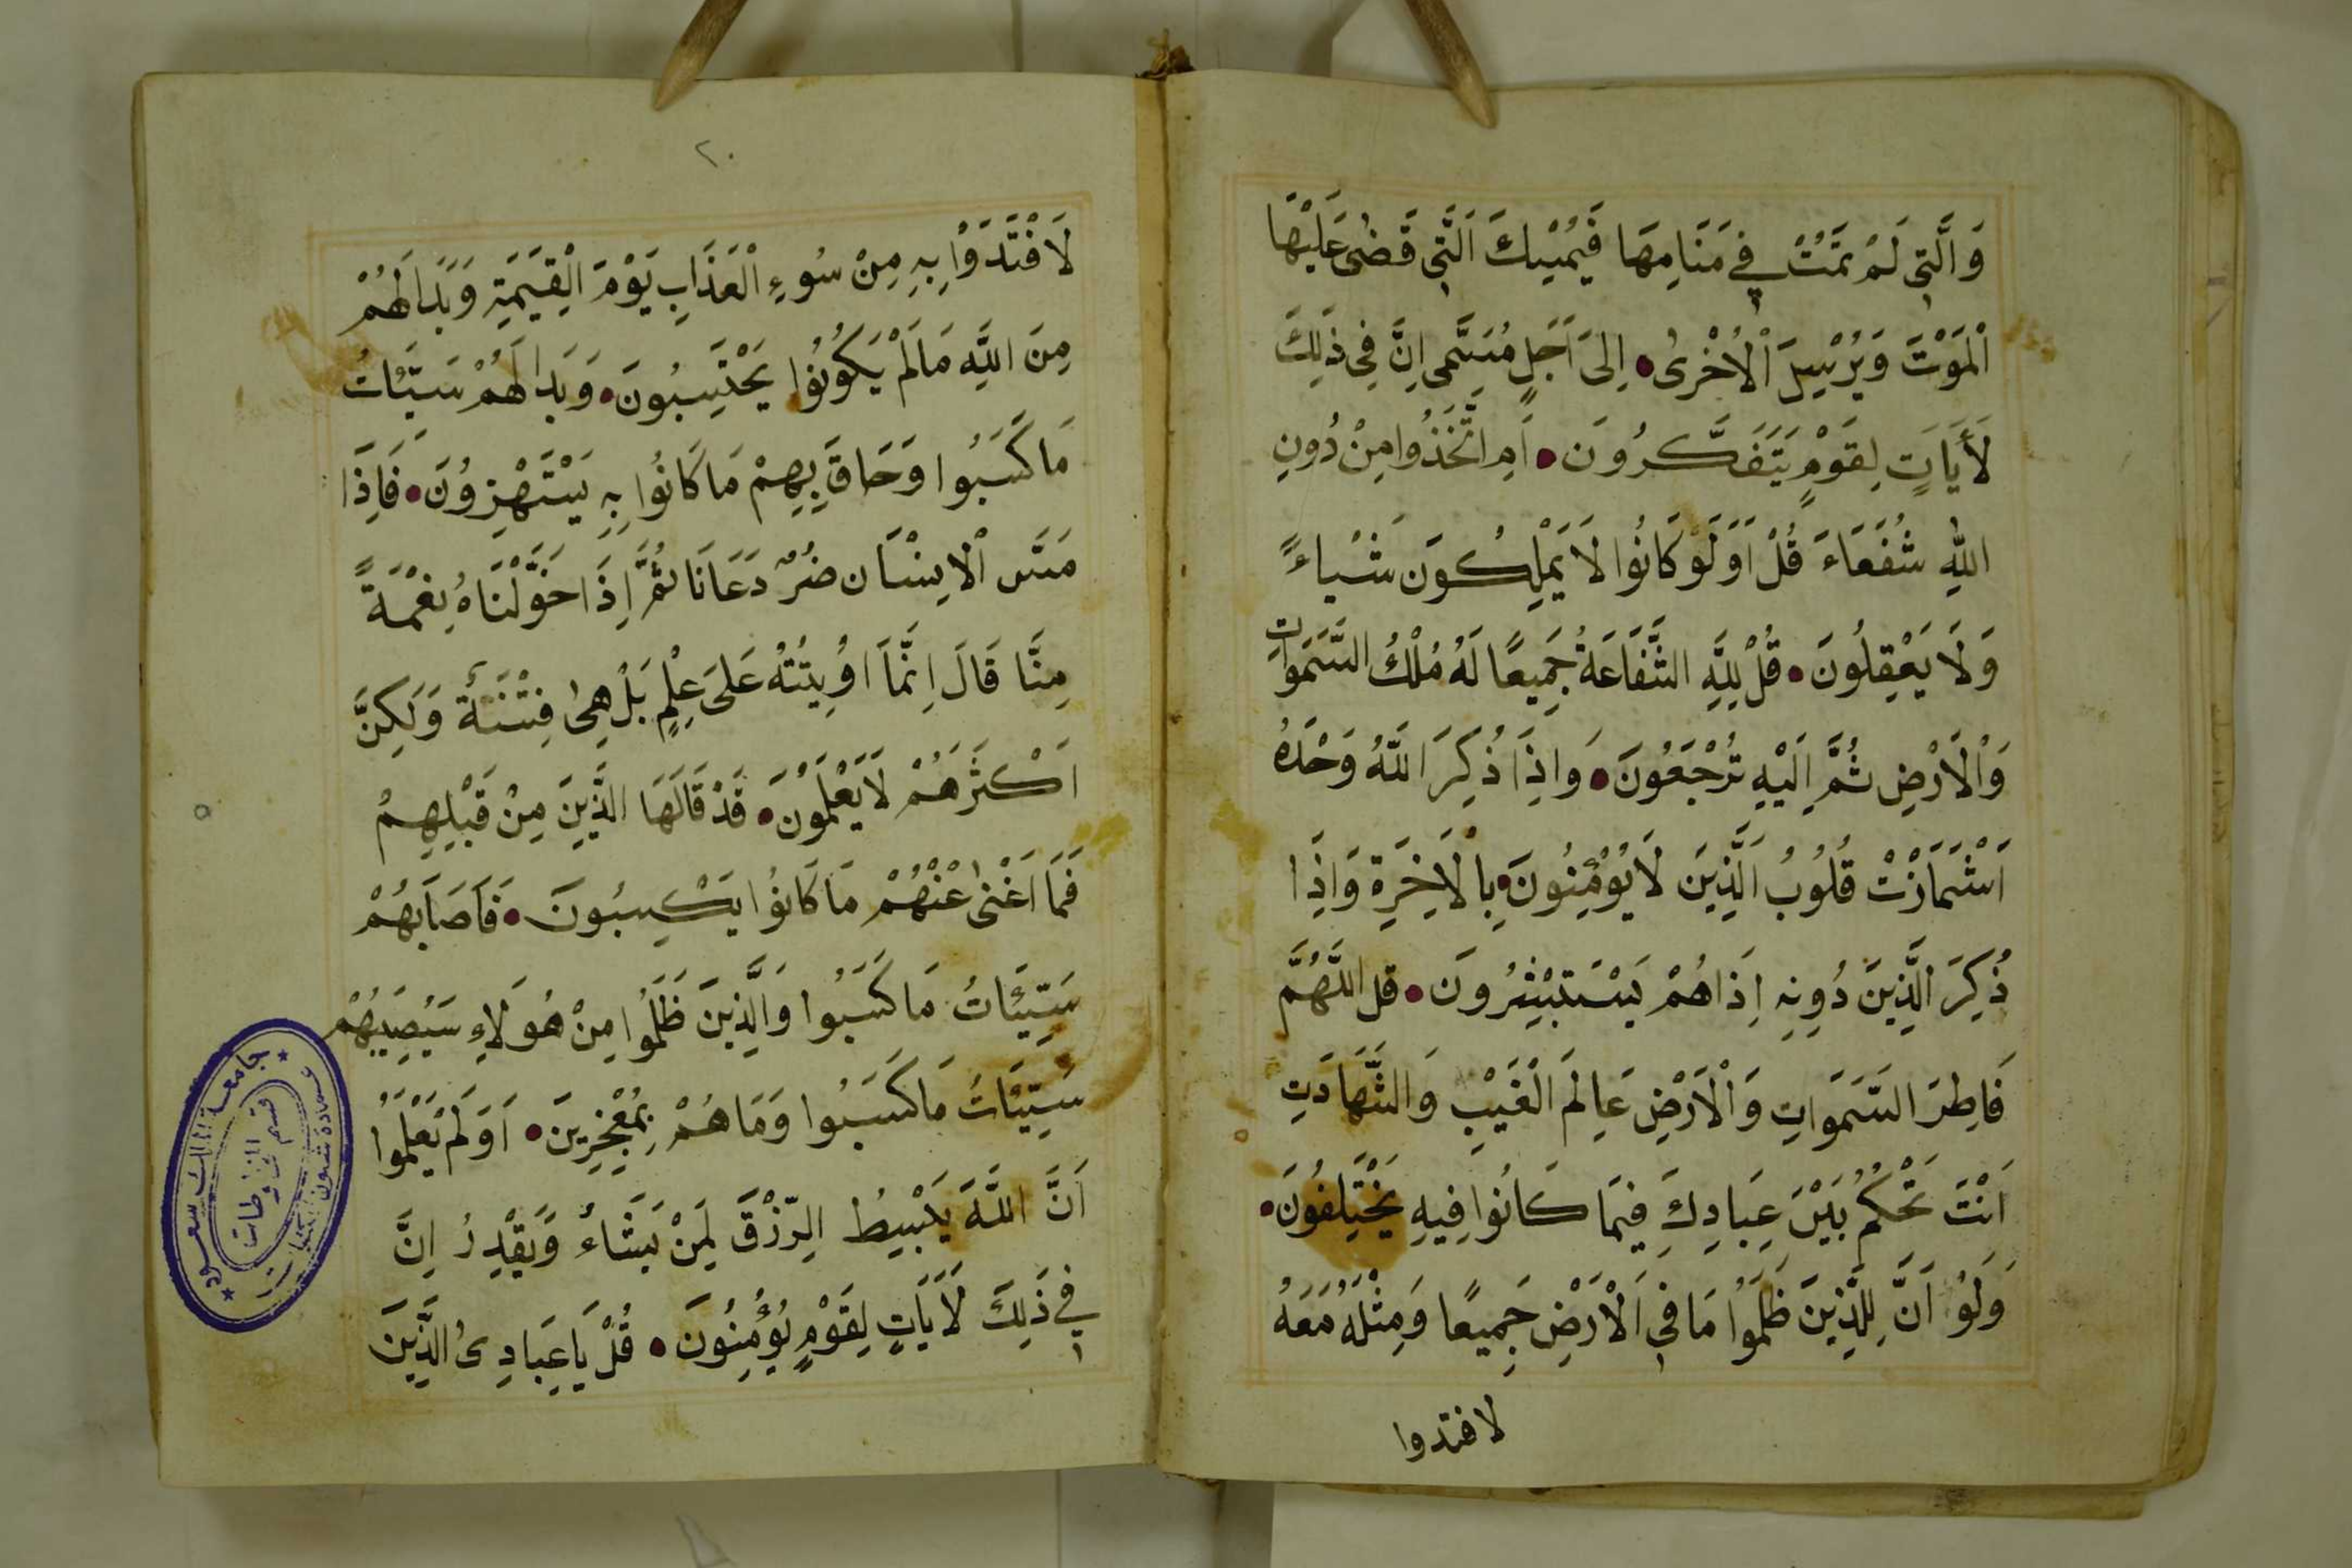 وَالَّتِي لَمْ تَمُتْ فِي مَنَامِهَا فَيُمْسِكُ الَّتِي قَضٰى عَلَيْهَا
الْمَوْتَ وَيُرْسِلُ الْأُخْرٰى • اِلىَ اَجَلٍ مُسَمًّى اِنَّ فِي ذٰلِكَ
لَأَيَاتٍ لِقَوْمٍ يَتَفَكَّرُونَ • اَمِ اتَّخَذُوا مِنْ دُونِ
اللّٰهِ شُفَعَاءَ قُلْ اَوَلَوْ كَانُوا لَا يَمْلِكُونَ شَيْاءً
وَلَا يَعْقِلُونَ • قُلْ لِلَّهِ الشَّفَاعَةُ جَمِيعًا لَهُ مُلْكُ السَّمَوَاتِ
وَالْاَرْضِ ثُمَّ اِلَيْهِ تُرْجَعُونَ • وَاِذَا ذُكِرَ اللَّهُ وَحْدَهُ
اَشْمَاَزَّتْ قُلُوبُ الَّذِينَ لَا يُؤْمِنُونَ بِالْاٰخِرَةِ وَاِذَا
ذُكِرَ الَّذِينَ دُونِهِ اِذَا هُمْ يَسْتَبْشِرُونَ • قل اللَّهُمَّ
فَاطِرَ السَّمَوَاتِ وَالْاَرْضِ عَالِمَ الْغَيْبِ وَالشَّهَادَتِ
اَنْتَ تَحْكُمُ بَيْنَ عِبَادِكَ فِيمَا كَانُوا فِيهِ يَخْتَلِفُونَ •
وَلَوْ اَنَّ لِلَّذِينَ ظَلَمُوا مَا فِي الْاَرْضِ جَمِيعًا وَمِثْلَهُ مَعَهُ
لافتدوا
٢٠
لَافْتَدَوْا بِهِ مِنْ سُوءِ الْعَذَابِ يَوْمَ الْقِيَمَةِ وَبَدَا لَهُمْ
مِنَ اللَّهِ مَا لَمْ يَكُونُوا يَحْتَسِبُونَ • وَبَدَا لَهُمْ سَيَّئَاتُ
مَا كَسَبُوا وَحَاقَ بِهِمْ مَا كَانُوا بِهِ يَسْتَهْزِؤُنَ • فَاِذَا
مَسَّ الْاِنْسَان ضُرٌّ دَعَانَا ثُمَّ اِذَا خَوَّلْنَاهُ نِعْمَةً
مِنَّا قَالَ اِنَّمَا اُوِيتُتُهُ عَلىَ عِلْمٍ بَلْ هِىَ فِتْنَةٌ وَلَكِنَّ
اَكْثَرَهُمْ لَا يَعْلَمُونَ • قَدْ قَالَهَا الَّذِينَ مِنْ قَبْلِهِمْ
فَمَا اَغْنٰى عَنْهُمْ مَا كَانُوا يَكْسِبُونَ • فَاَصَابَهُمْ
سَيِّئَاتُ مَا كَسَبُوا وَالَّذِينَ ظَلَمُوا مِنْ هٰوَلَاءِ سَيُصِيبُهُمْ
سَيِّئَاتُ مَا كَسَبُوا وَمَا هُمْ بِمُعْجِزِينَ • اَوَلَمْ يَعْلَمُوا
اَنَّ اللَّهَ يَبْسِطُ الرِّزْقَ لِمَنْ يَشَاءُ وَيَقْدِرُ اِنَّ
فِي ذَلِكَ لَاَيَاتٍ لِقَوْمٍ يُؤْمِنُونَ • قُلْ يَا عِبَادِىَ الَّذِينَ
جامعة الملك سعود
عمادة شئون المكتبات
قسم المخطوطات